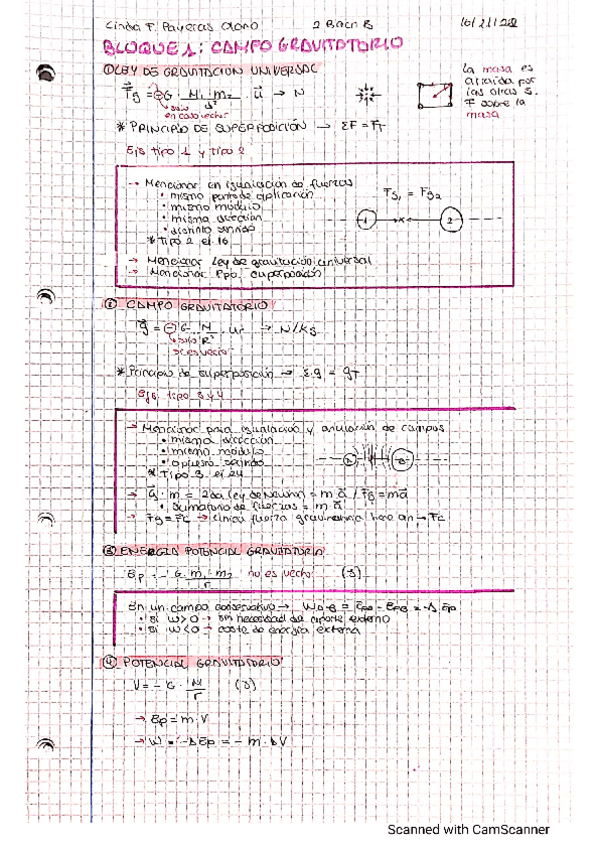 Linda F. Payeras Olano 2 Bach B 16/21/22
BLOQUE 1: CAMPO GRAVITATORIO
① LEY DE GRAVITACION UNIVERSAL
F⃗g = -G M1 · m2 / d² · u⃗ → N
solo
en caso vector
La masa es
atraida por
las otras s.
F sobre la
masa
* PRINCIPIO DE SUPERPOSICIÓN → ΣF = FT
Ejs tipo 1 y tipo 2
→ Mencionar en igualación de fuerzas
• mismo punto de aplicación
• mismo módulo
• misma dirección
• distinto sentido
* Tipo 2 ej 16
Fg1 = Fg2
1 2
→ Mencionar Ley de gravitación universal
→ Mencionar Ppo. superposición
② CAMPO GRAVITATORIO
g⃗ = -G M / R² · ur → N/kg
solo
si es vector
* Principio de superposición → Σg = gT
Ejs tipo 3 y 4
→ Mencionar para igualación y anulación de campos
• misma dirección
• mismo módulo
• opuesto sentido
* Tipo 3 ej 24
→ g⃗ · m = 2da (ley de Newton) = m a⃗ / F⃗g = ma⃗
• Sumatorio de fuerzas = m a⃗
→ Fg = Fc → única fuerza gravitatoria → Fc
③ ENERGIA POTENCIAL GRAVITATORIO
Ep = - G · m1 · m2 / r no es vector (J)
En un campo conservativo → WA→B = EpA - EpB = -Δ Ep
• Si W>0 → sin necesidad de aporte externo
• Si W<0 → coste de energía externa
④ POTENCIAL GRAVITATORIO
V = - G · M / r (J)
→ Ep = m · V
→ W = -ΔEp = - m · ΔV
Scanned with CamScanner